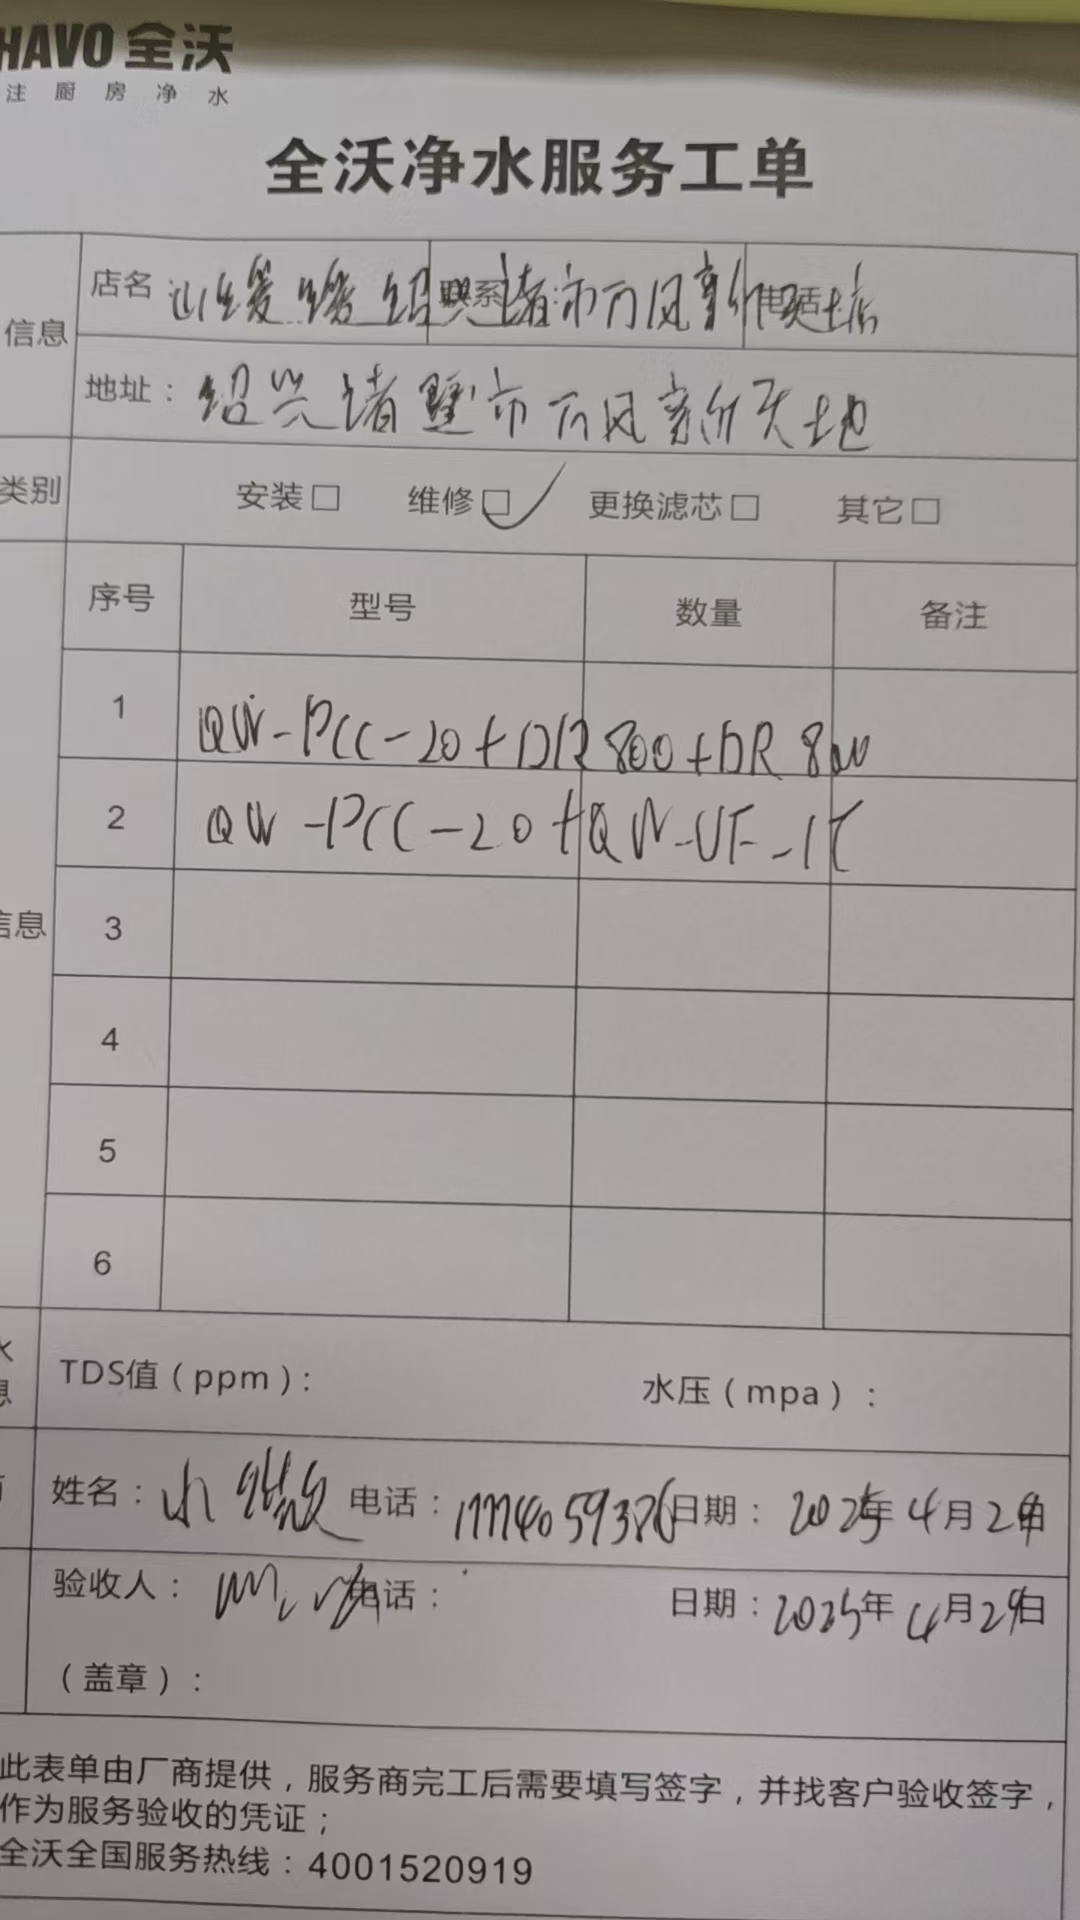 HAVO 全沃
注厨房净水
全沃净水服务工单
信息
店名 绍 联系 诸 市万风新 电话 店
地址：绍兴诸暨市万风新天地
类别 安装□ 维修□✓ 更换滤芯□ 其它□
序号 型号 数量 备注
1 QW-PCC-20+DR800+DR800
2 QW-PCC-20+QW-UF-1T
信息 3
4
5
6
TDS值（ppm）： 水压（mpa）：
姓名：小 电话：17774059376 日期：2025年4月29日
验收人： 电话： 日期：2025年4月29日
（盖章）：
此表单由厂商提供，服务商完工后需要填写签字，并找客户验收签字，
作为服务验收的凭证；
全沃全国服务热线：4001520919